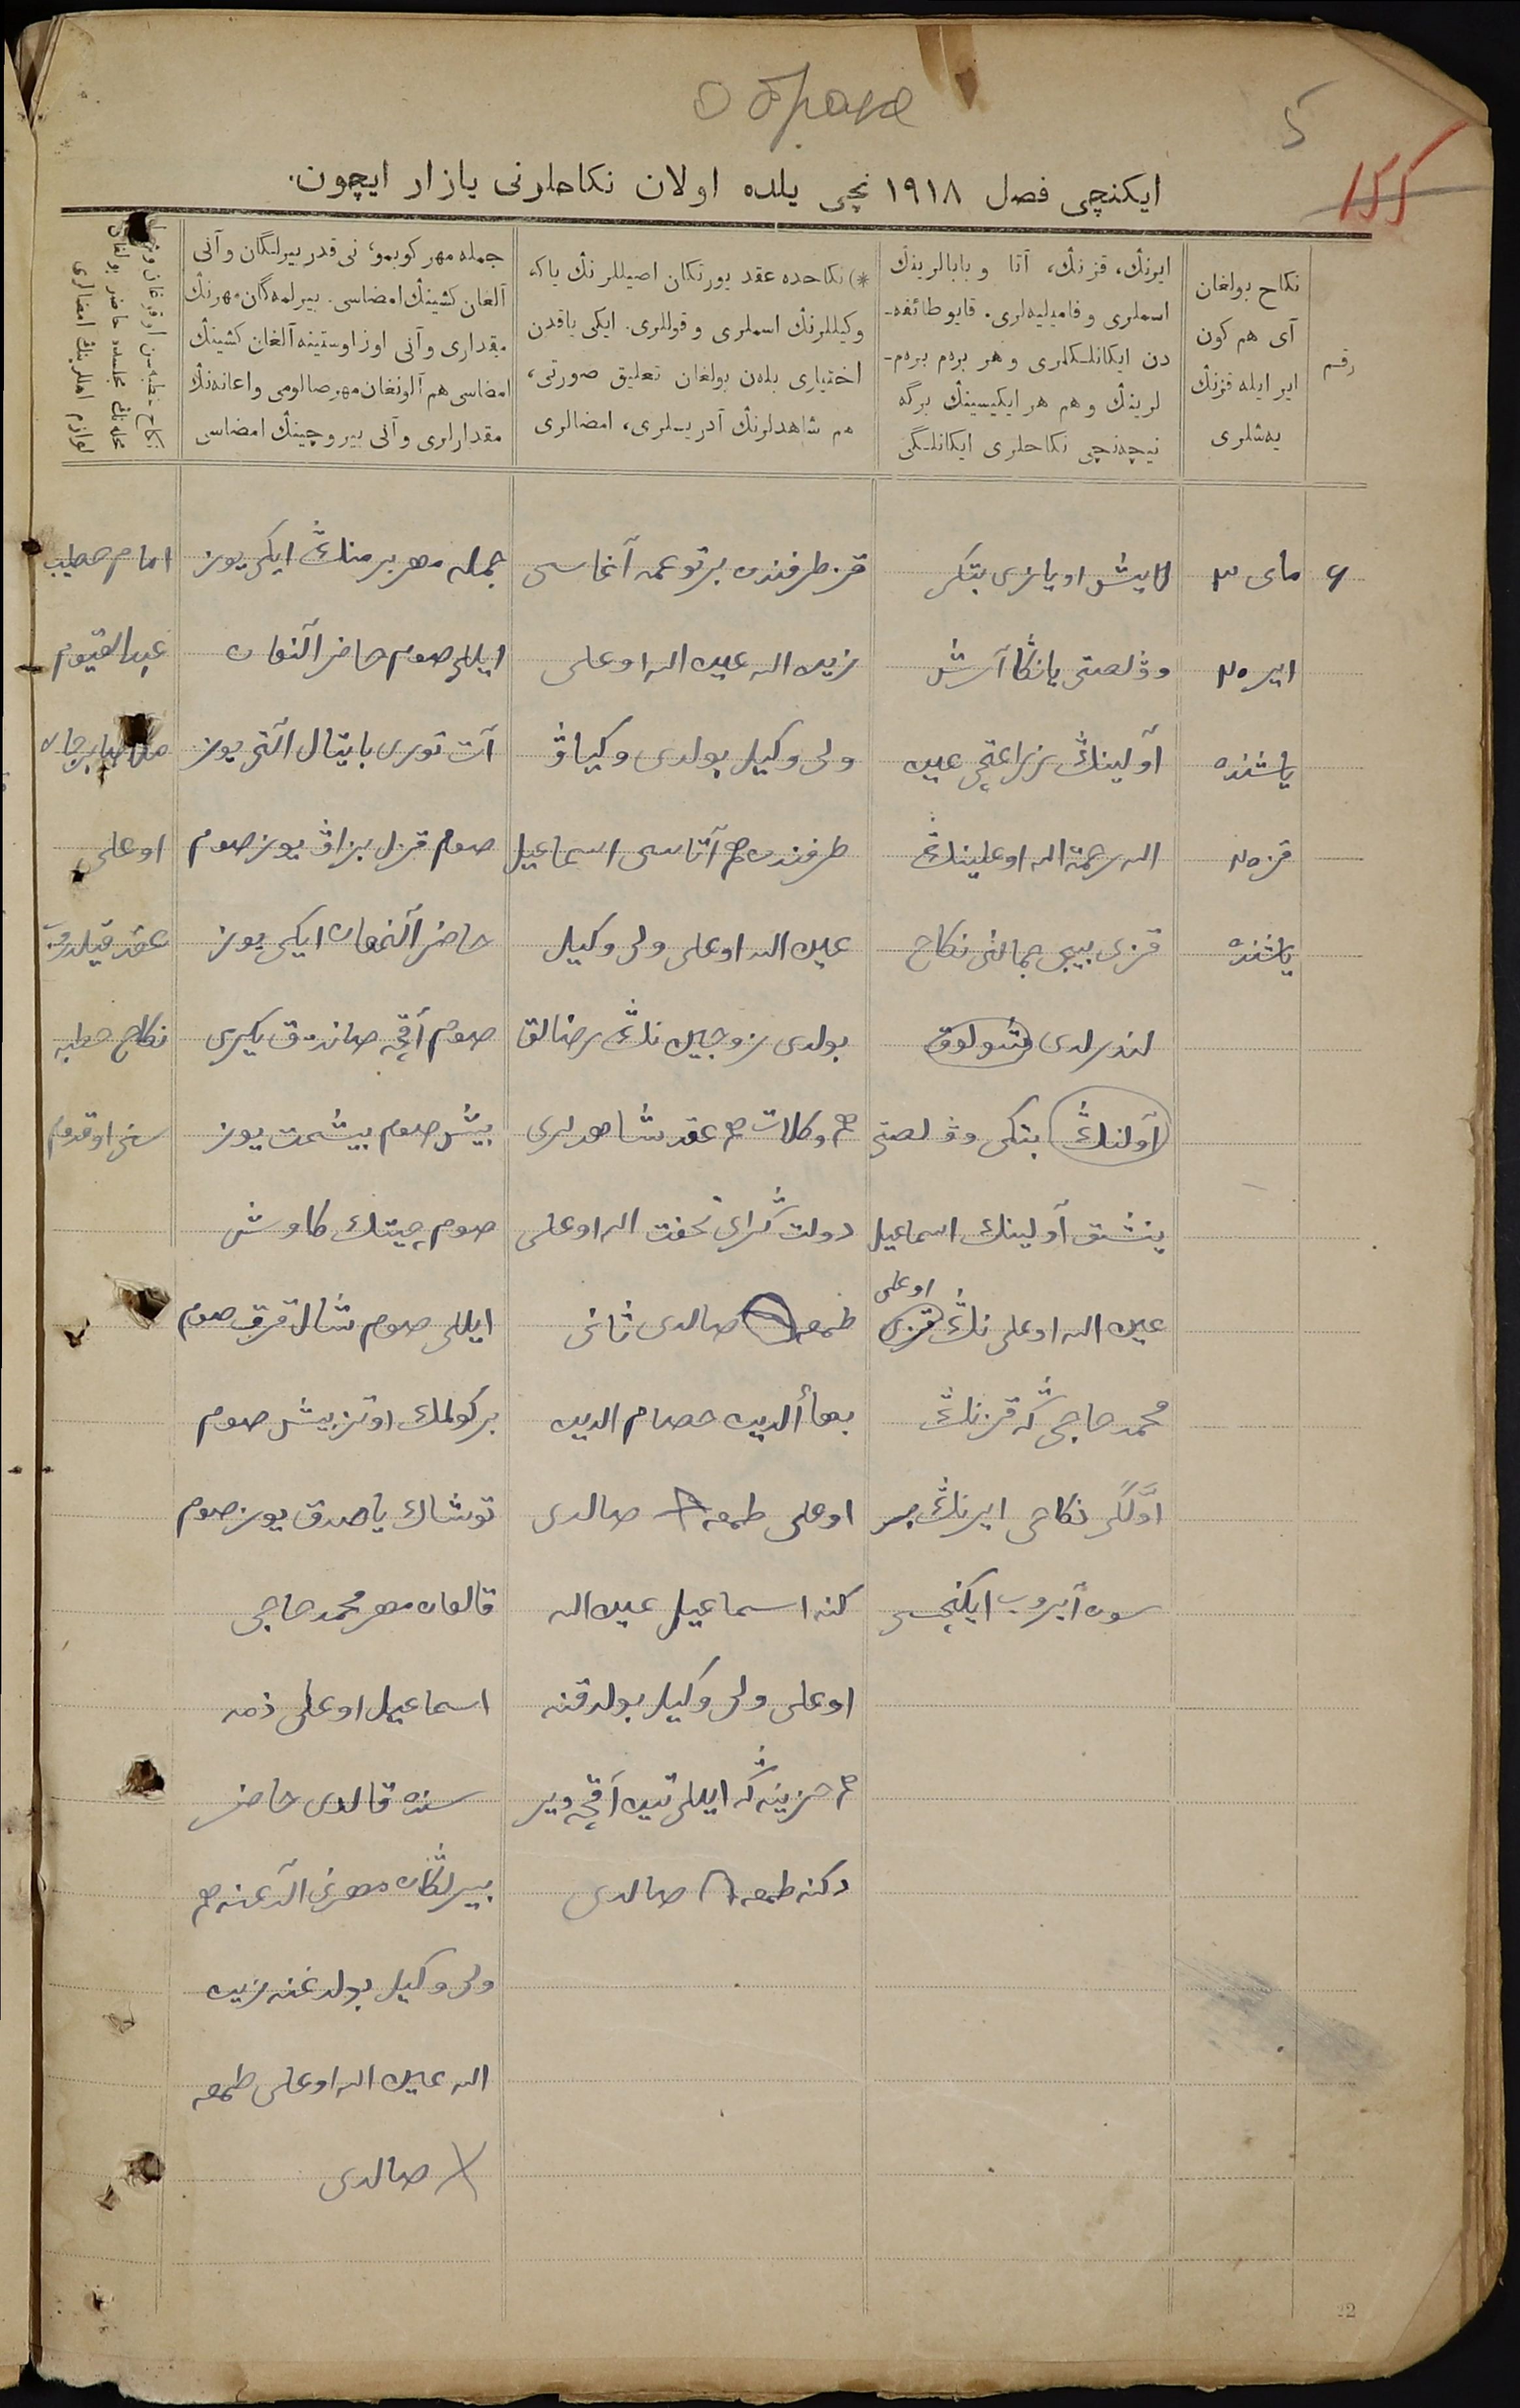 о браке
5
155
ایکنچی فصل ۱۹۱۸ نچی یلده اولان نکاحلرنی یازار ایچون.
رقم
نکاح بولغان
آی هم کون
ایر ایله قزنڭ
یه‌شلری
ایرنڭ، قزنڭ، آتا و بابالرینڭ
اسملری و فامیلیه‌لری. قایو طائفه‌-
دن ایکانلکلری و هر برەم برەم-
لرینڭ و هم هر ایکیسینڭ برگه
نیچه‌نچی نکاحلری ایکانلگی
*) نکاحده عقد یورتکان اصیللرنڭ یاکه
وکیللرنڭ اسملری و قوللری. ایکی یاقدن
اختیاری بله‌ن بولغان تعلیق صورتی،
هم شاهدلرنڭ آدریسلری، امضالری
جمله مهر کوبمو، نی قدر بیرلگان و آنی
آلغان کشینڭ امضاسی. بیرلمه‌گان مهرنڭ
مقداری و آنی اوز اوستینه آلغان کشینڭ
امضاسی هم آلونغان مهر صالومی و اعانه‌نڭ
مقدارلری و آنی بیروچینڭ امضاسی
نکاح خطبه‌سن اوقوغان
محله‌نڭ مجلسده حاضر بولغان
لوازم اهللرینڭ امضالری
۶
مای ۳
ایر ۲۰
یاشنده
قز ۲۰
یاشنده
لایش اویازی بتکی
وۋلصتی یانکا آرش
آولینڭ زراعتچی عبید
الله رحمة الله اوعلینڭ
قزی بیبی جمالنی نکاح
لندرلدی
آولنڭ بتکی وۋلصتی
ینشتق آولینڭ اسماعیل
عبید الله اوعلی نڭ قزی اوعلی
محمد حاجی گه قزنڭ
اوّلگی نکاحی ایرنڭ بر
سون آیروب ایکنچسی
قز طرفندن برتوعمه آغاسی
زید الله عبید الله اوعلی
ولی وکیل بولدی وکیاۋ
طرفندن هم آتاسی اسماعیل
عبید الله اوعلی ولی وکیل
بولدی زوجین نڭ رضالق
هم وکالات هم عقد شاهدلری
دولت گرای تحفت الله اوعلی
طمعه صالدی ثانی
بهاألدین حصام الدین
اوعلی طمعه صالدی
کنه اسماعیل عبید الله
اوعلی ولی وکیل بولدقنه
هم خزینه گه ایللی تین آقچه ویر
دکنه طمعه صالدی
جمله مهر بر منڭ ایکی یوز
ایللی صوم حاضر آلنعان
آت توری بایتال آلتی یوز
صوم قزل بزاۋ یوز صوم
حاضر آلنمعان ایکی یوز
صوم آقچه صاندوق یکرمی
بیش صوم بیشمت یوز
صوم چیتك کاوش
ایللی صوم شال قرق صوم
بر کولمك اوتز بیش صوم
توشاك یاصدق یوز صوم
قالعان مهر محمد حاجی
اسماعیل اوعلی ذمه
سنده قالدی حاضر
بیرلگان مهرنی آلدعنه هم
ولی وکیل بولدغنه زید
الله عبید الله اوعلی طمعه
صالدی
امام خطیب
عبدالقیوم
ملا صابرجان
اوعلی
عقد قیلدم
نکاح خطبه
سنی اوقدم
22